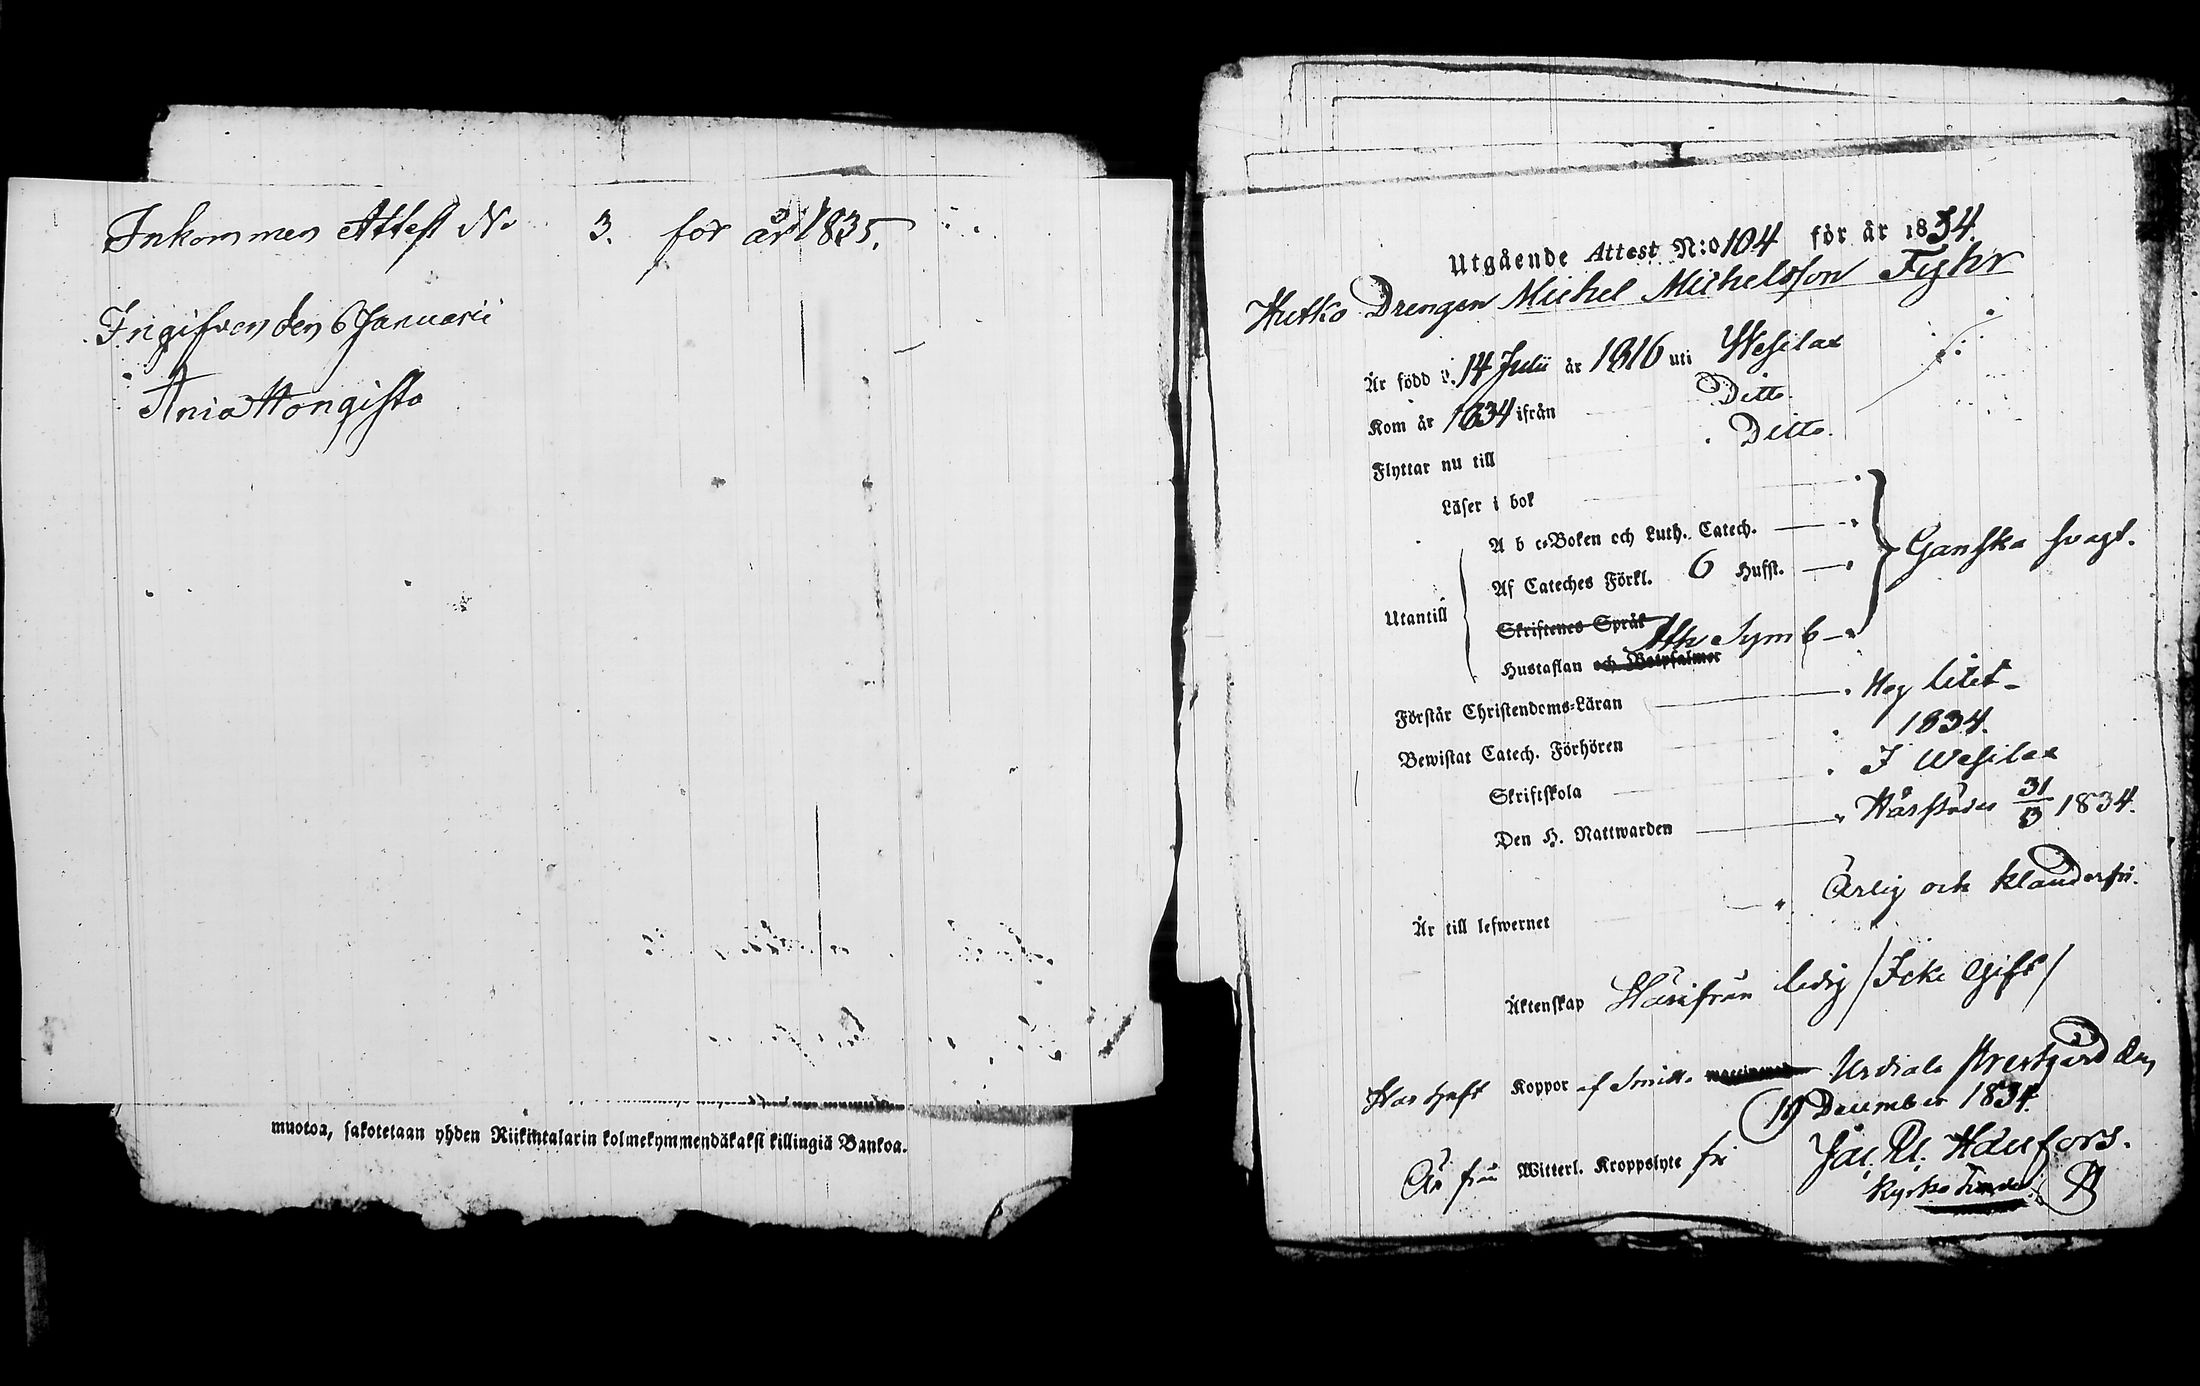 Inkommen Attest No 3. för år 1835.
Ingifven den 6 Januarii
Ania Hongisto
muotoa, sakotetaan yhden Riikintalarin kolmekymmendäkaksi killingiä Bankoa.
Utgående Attest N:o 104 för år 1834.
Hutko Drengen Michel Michelsson Fyhr
Är född d. 14 Julii år 1816 uti Wesilax
Kom år 1834 ifrån Ditto.
Flyttar nu till Ditto.
Läser i bok
A b c-Boken och Luth. Catech.
Ganska svagt.
Af Cateches Förkl. 6 Hufst.
Utantill
Skriftenes Språk Ath Symb
Hustaflan och Botpsalmer
Förstår Christendoms-Läran Nog litet
Bewistat Catech. Förhören 1834.
Skriftskola I Wesilax
Den H. Nattwarden Härstädes 31/3 1834.
Är till lefwernet Ärlig och klanderfri.
Äktenskap Härifrån ledig /Icke Gift/
Har haft Koppor af Smitt. Urdiala Prestgård den
19 December 1834.
Är från Witterl. Kroppslyte fri